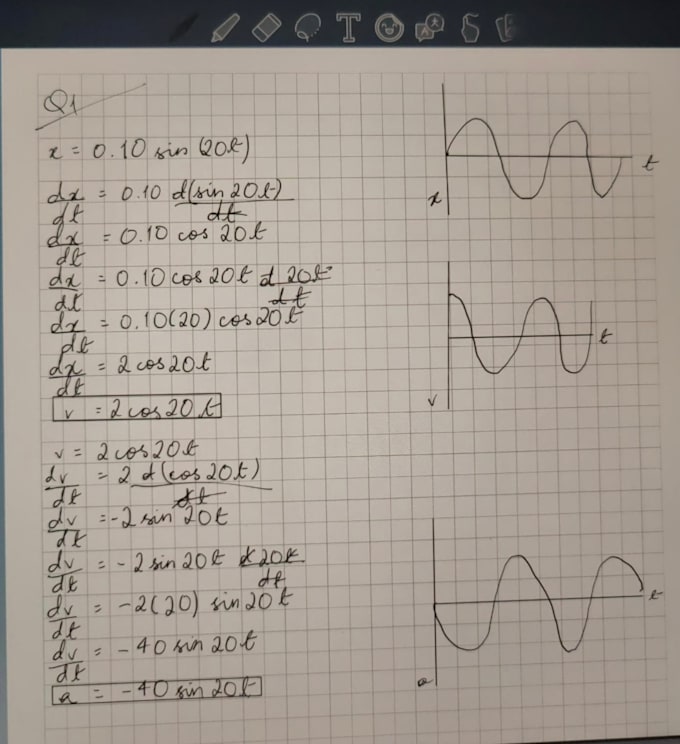 Q1
x = 0.10 sin (20t)
dx/dt = 0.10 d(sin 20t)/dt
dx/dt = 0.10 cos 20t
dx/dt = 0.10 cos 20t d 20t/dt
dx/dt = 0.10(20) cos 20t
dx/dt = 2 cos 20t
v = 2 cos 20t
v = 2 cos 20t
dv/dt = 2 d(cos 20t)/dt
dv/dt = -2 sin 20t
dv/dt = -2 sin 20t d 20t/dt
dv/dt = -2(20) sin 20t
dv/dt = -40 sin 20t
a = -40 sin 20t
x
t
v
t
a
t